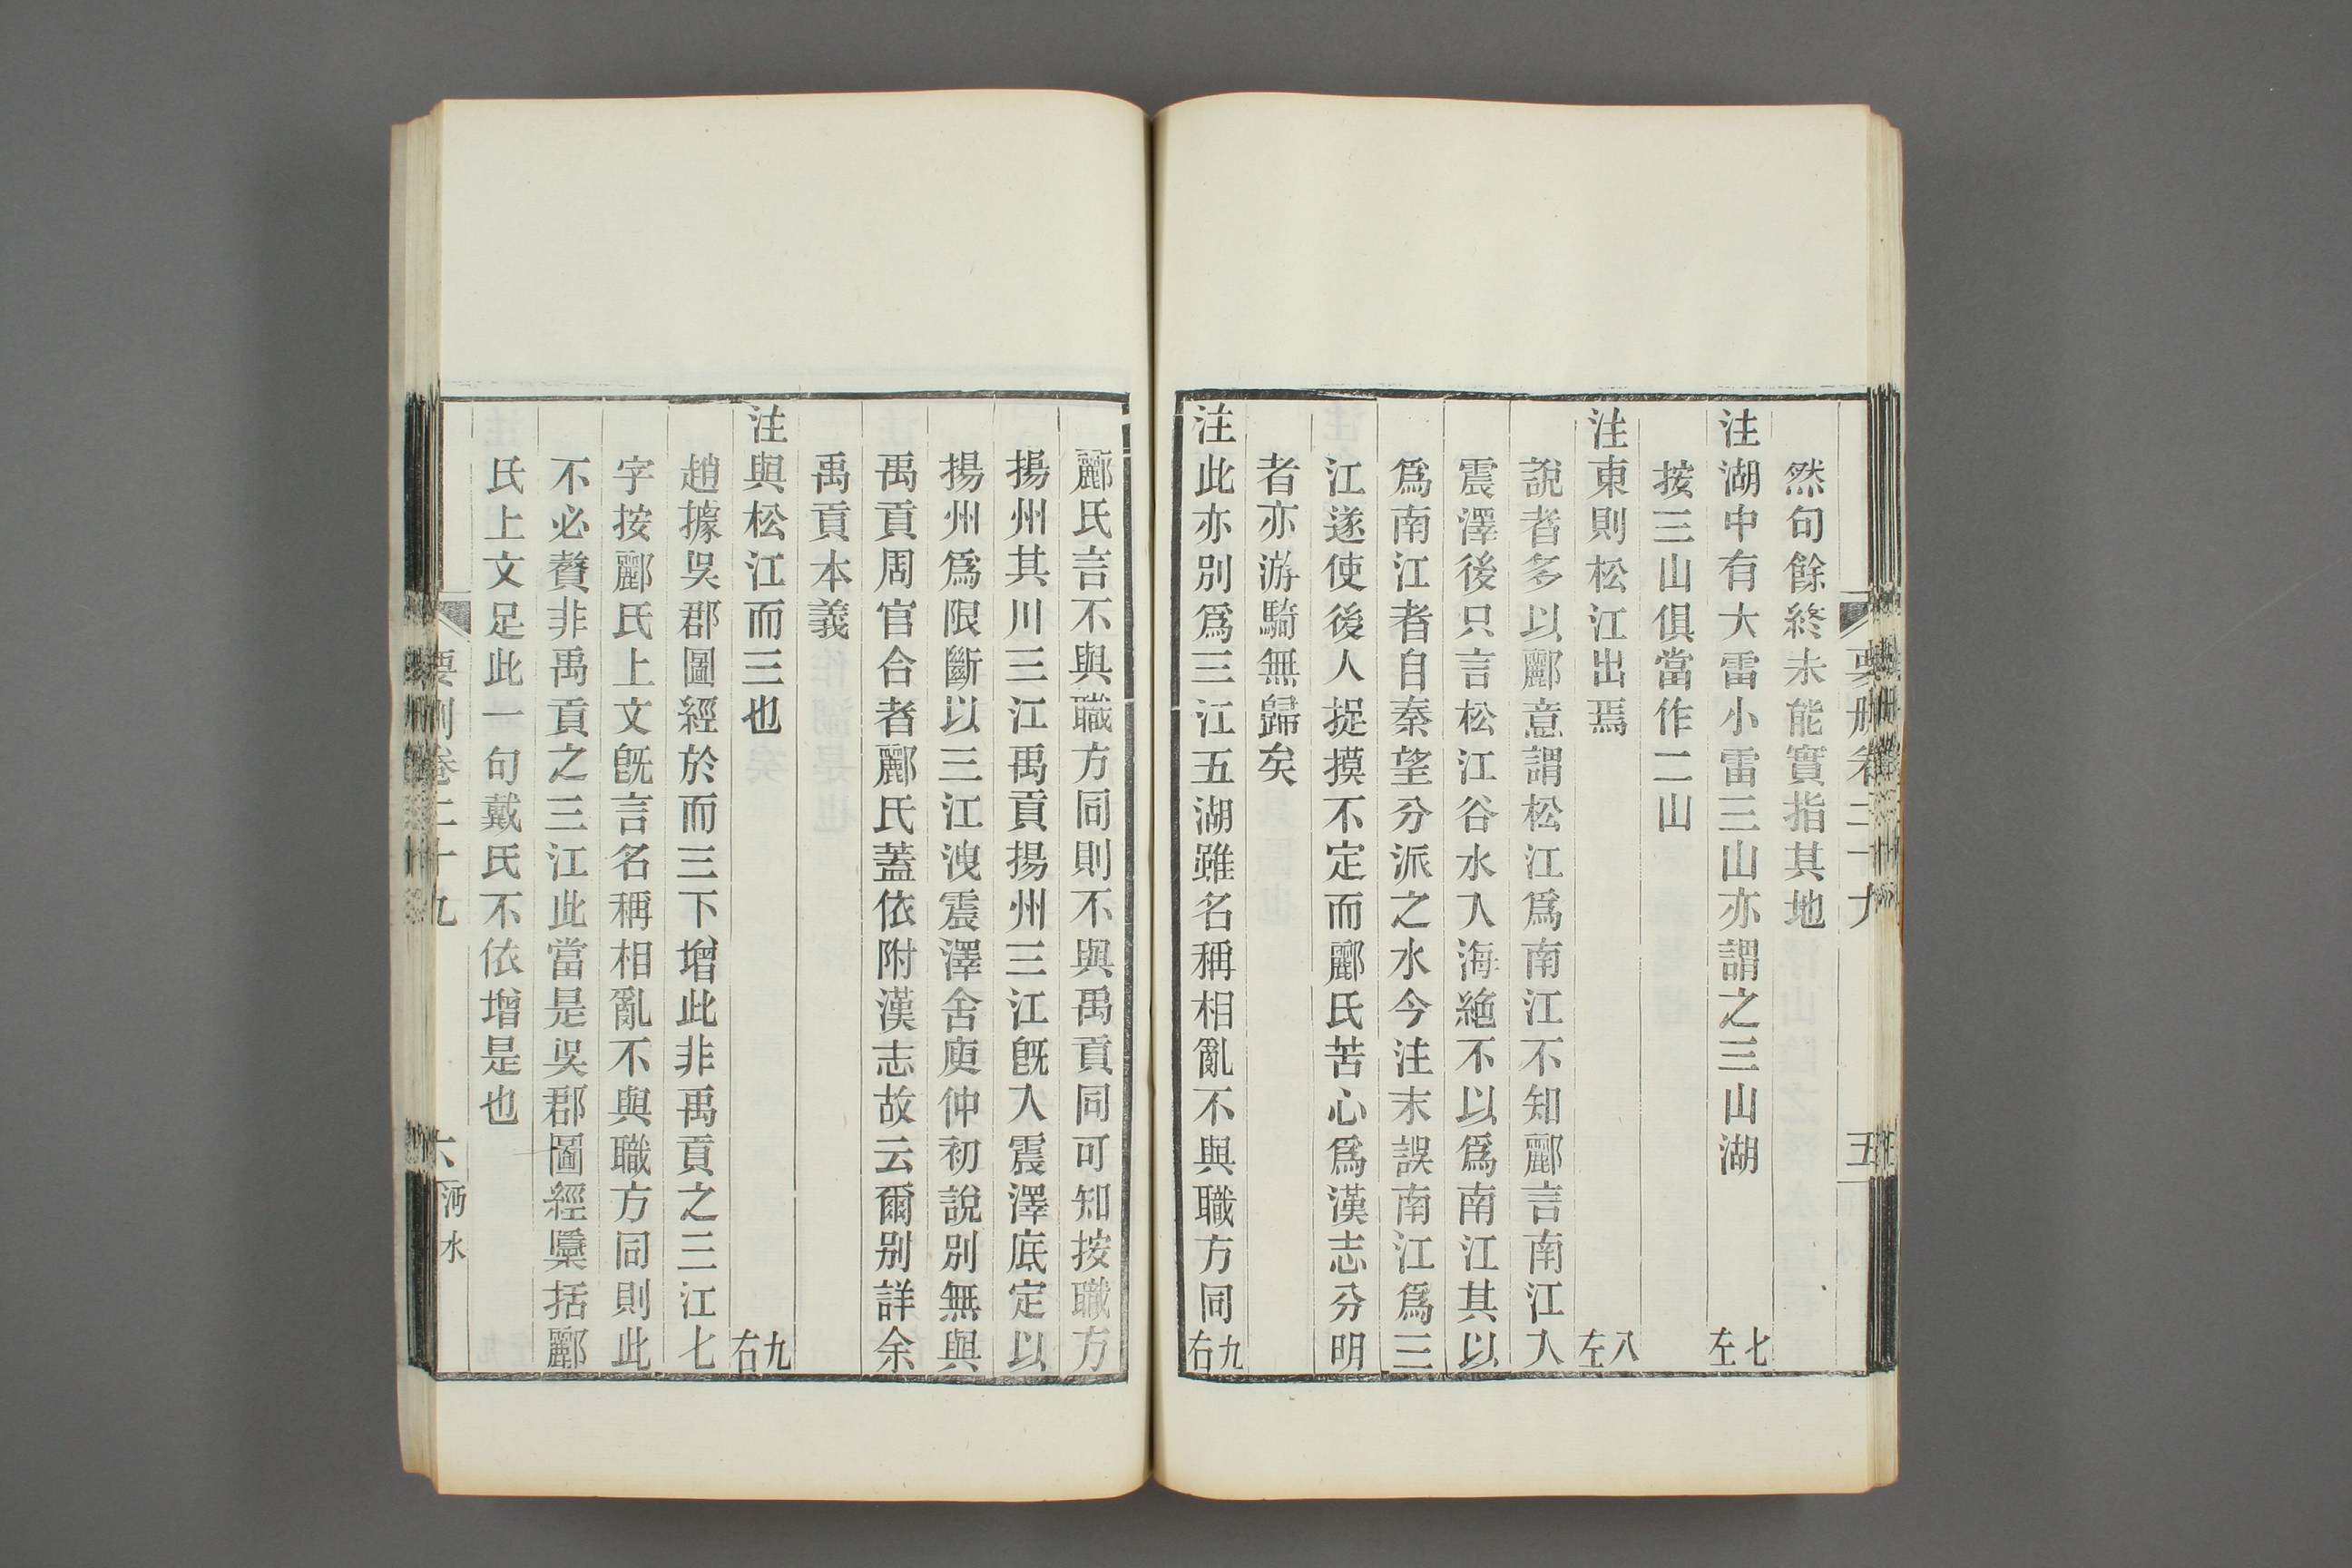 要刪卷二十九
五
然句餘終未能實指其地
注湖中有大雷小雷三山亦謂之三山湖 七左
按三山俱當作二山
注東則松江出焉 八左
說者多以酈意謂松江爲南江不知酈言南江入
震澤後只言松江谷水入海絶不以爲南江其以
爲南江者自秦望分派之水今注末誤南江爲三
江遂使後人捉摸不定而酈氏苦心爲漢志分明
者亦游騎無歸矣
注此亦別爲三江五湖雖名稱相亂不與職方同 九右
酈氏言不與職方同則不與禹貢同可知按職方
揚州其川三江禹貢揚州三江既入震澤底定以
揚州爲限斷以三江洩震澤舍庾仲初說別無與
禹貢周官合者酈氏蓋依附漢志故云爾别詳余
禹貢本義
注與松江而三也 九右
趙據吳郡圖經於而三下增此非禹貢之三江七
字按酈氏上文旣言名稱相亂不與職方同則此
不必贅非禹貢之三江此當是吳郡圖經檃括酈
氏上文足此一句戴氏不依增是也
要刪卷二十九
六
沔水